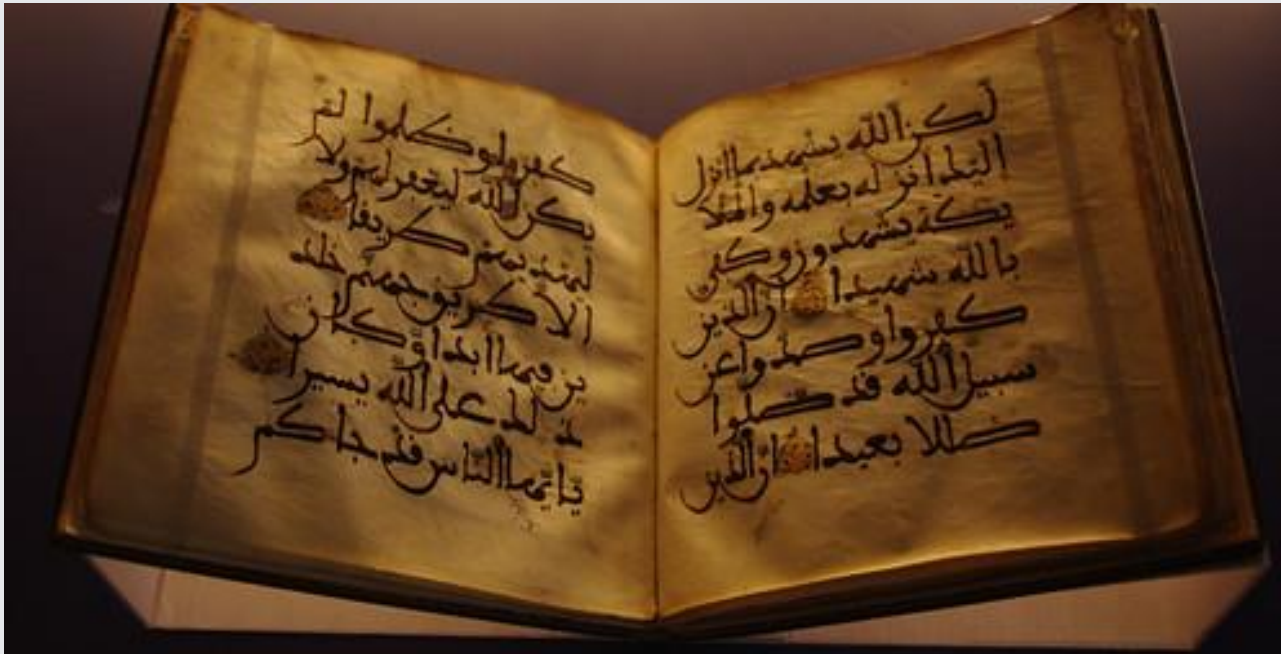 لكن الله يشهد بما انزل
اليك انزله بعلمه والملا
يكة يشهدون وكفى
بالله شهيدا ان الذين
كفروا وصدوا عن
سبيل الله قد ضلوا
ضللا بعيدا ان الذين
كفروا وظلموا لم
يكن الله ليغفر لهم ولا
ليهديهم طريقا
الا طريق جهنم خلد
ين فيها ابدا وكان
ذلك على الله يسيرا
يايها الناس قد جاكم